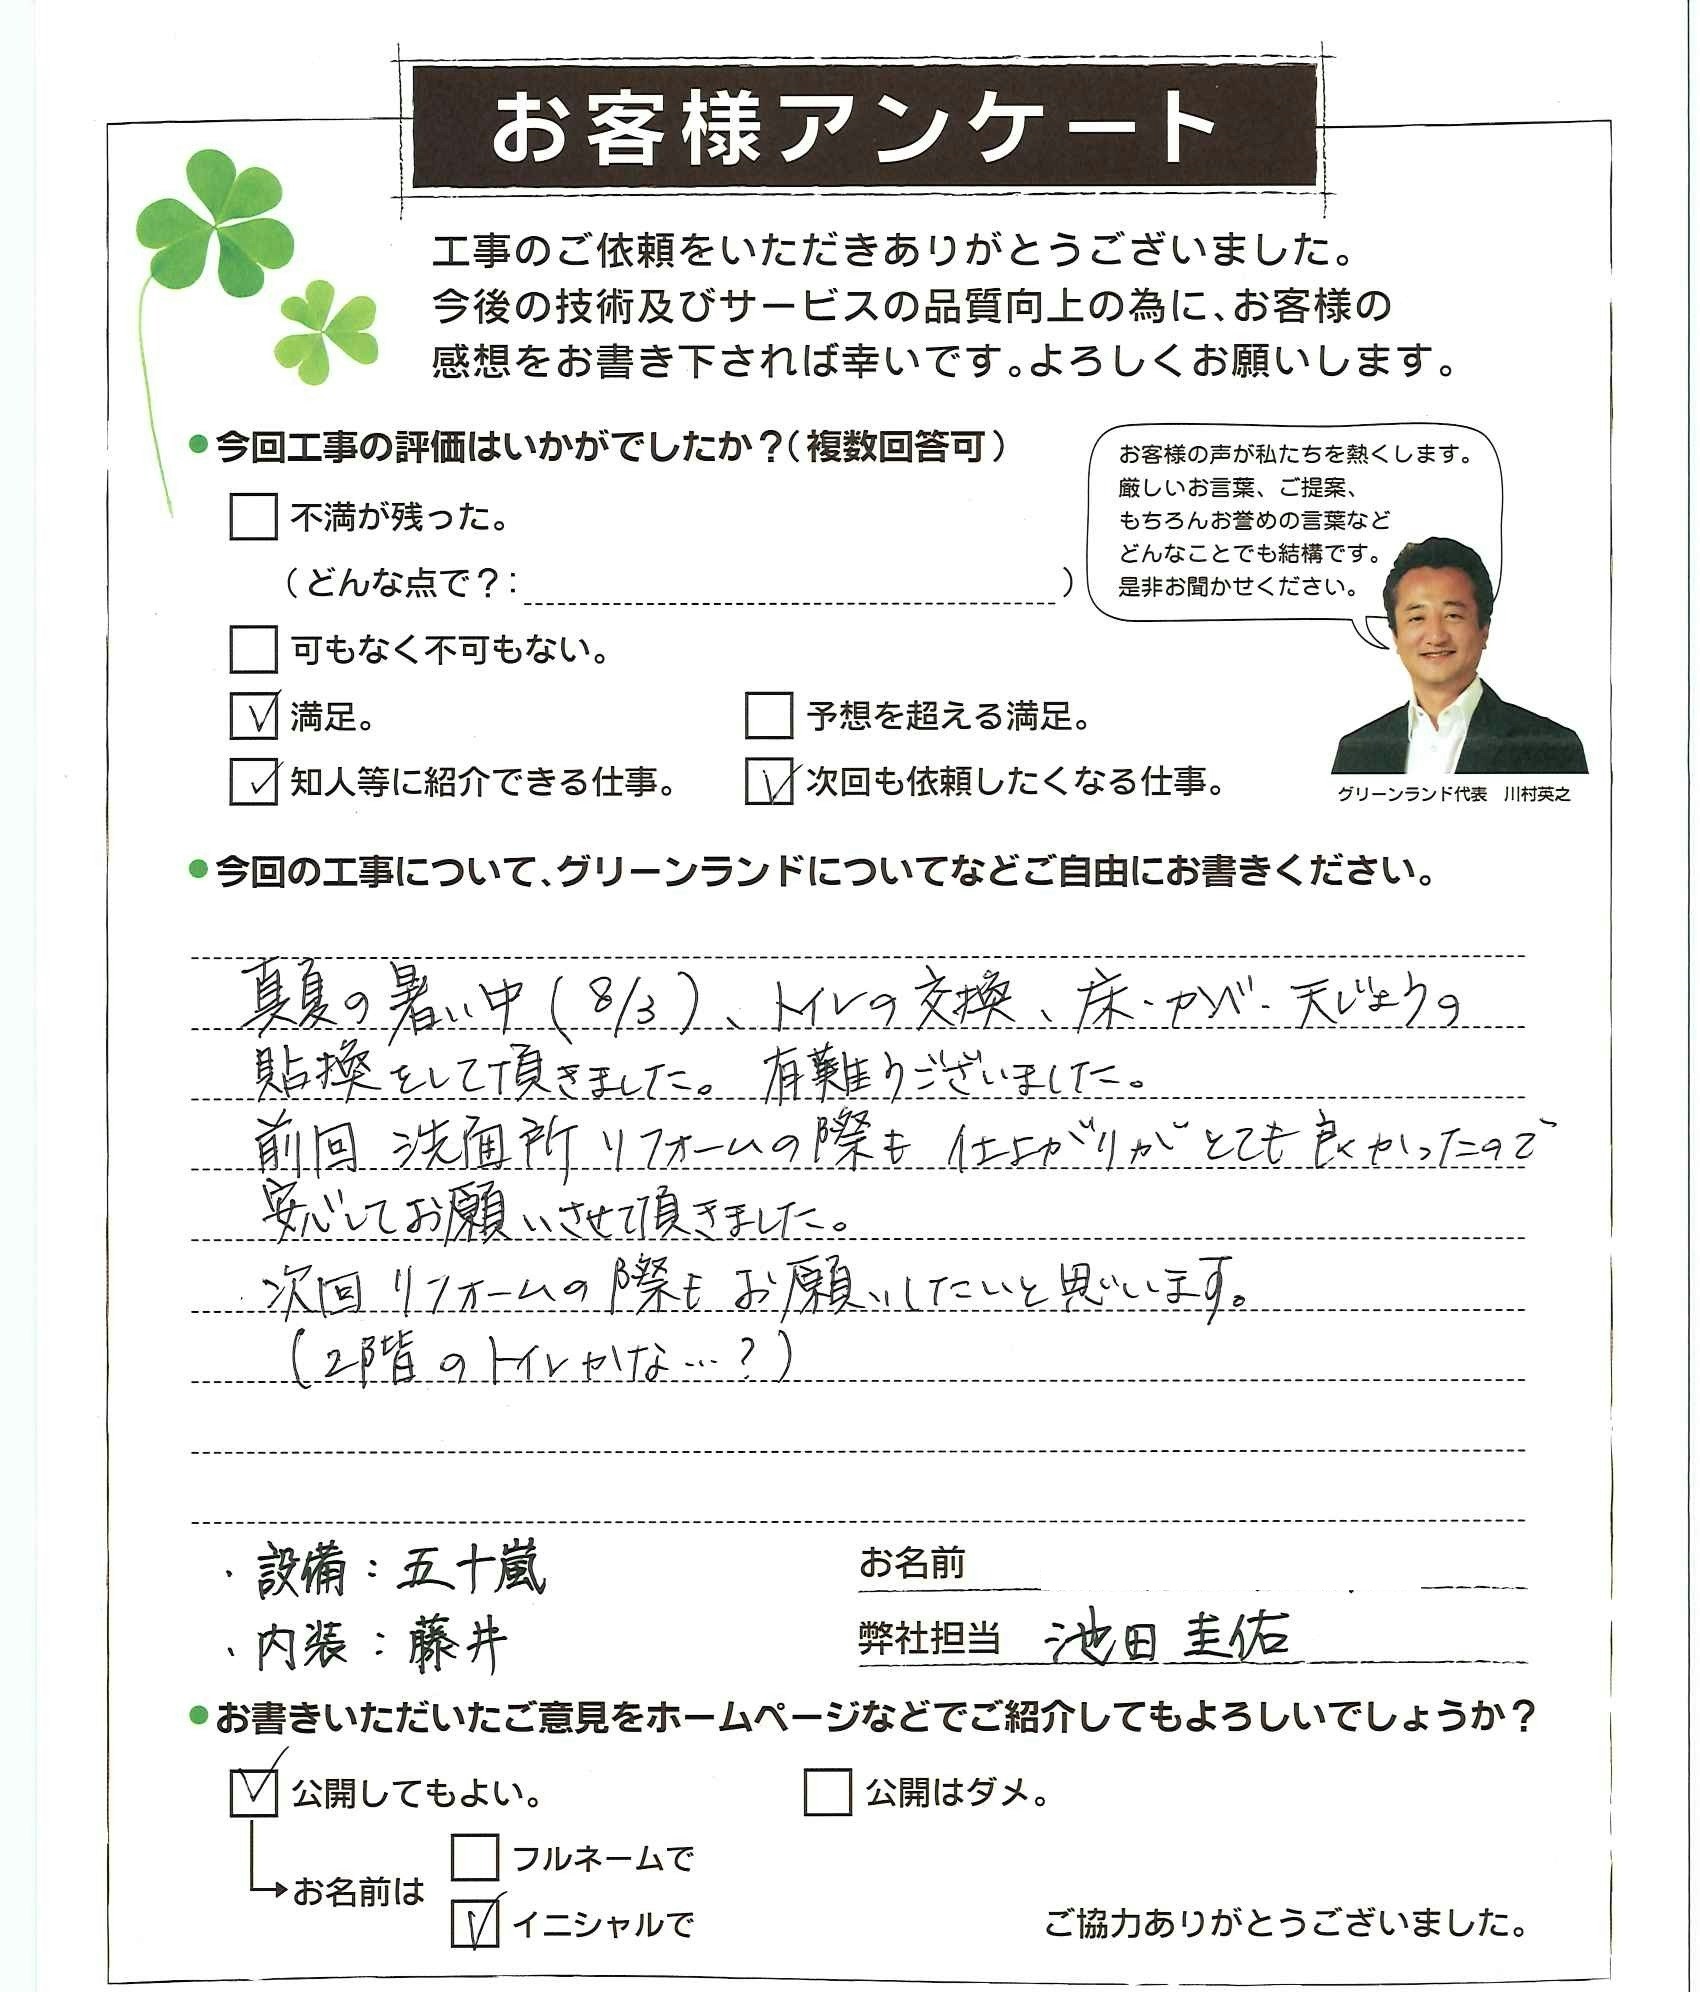 お客様アンケート
工事のご依頼をいただきありがとうございました。
今後の技術及びサービスの品質向上の為に、お客様の
感想をお書き下されば幸いです。よろしくお願いします。
●今回工事の評価はいかがでしたか？（複数回答可）
不満が残った。
（どんな点で？： ）
可もなく不可もない。
満足。
予想を超える満足。
知人等に紹介できる仕事。
次回も依頼したくなる仕事。
お客様の声が私たちを熱くします。
厳しいお言葉、ご提案、
もちろんお誉めの言葉など
どんなことでも結構です。
是非お聞かせください。
グリーンランド代表 川村英之
●今回の工事について、グリーンランドについてなどご自由にお書きください。
真夏の暑い中(8/3)、トイレの交換、床・かべ・天じょうの
貼換をして頂きました。有難うございました。
前回 洗面所リフォームの際も 仕上がりがとても良かったので
安心してお願いさせて頂きました。
次回リフォームの際も お願いしたいと思いします。
(2階のトイレかな…?)
・設備：五十嵐
・内装：藤井
お名前
弊社担当 池田圭佑
●お書きいただいたご意見をホームページなどでご紹介してもよろしいでしょうか？
公開してもよい。
公開はダメ。
お名前は
フルネームで
イニシャルで
ご協力ありがとうございました。